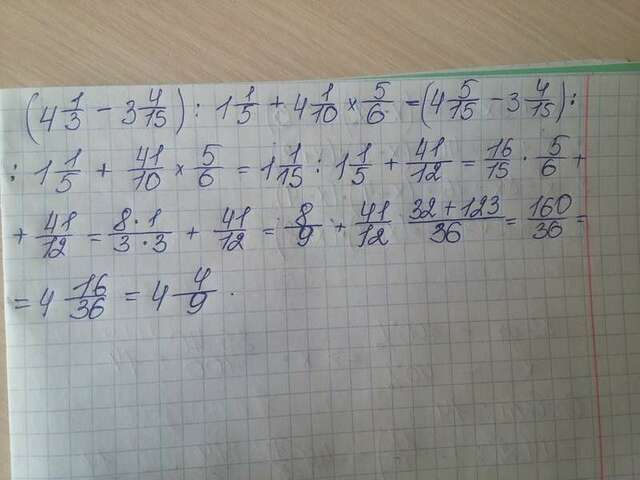 (4 1/3 - 3 4/15) : 1 1/5 + 4 1/10 × 5/6 = (4 5/15 - 3 4/15) :
: 1 1/5 + 41/10 × 5/6 = 1 1/15 : 1 1/5 + 41/12 = 16/15 · 5/6 +
+ 41/12 = 8·1/3·3 + 41/12 = 8/9 + 41/12 32+123/36 = 160/36 =
= 4 16/36 = 4 4/9.